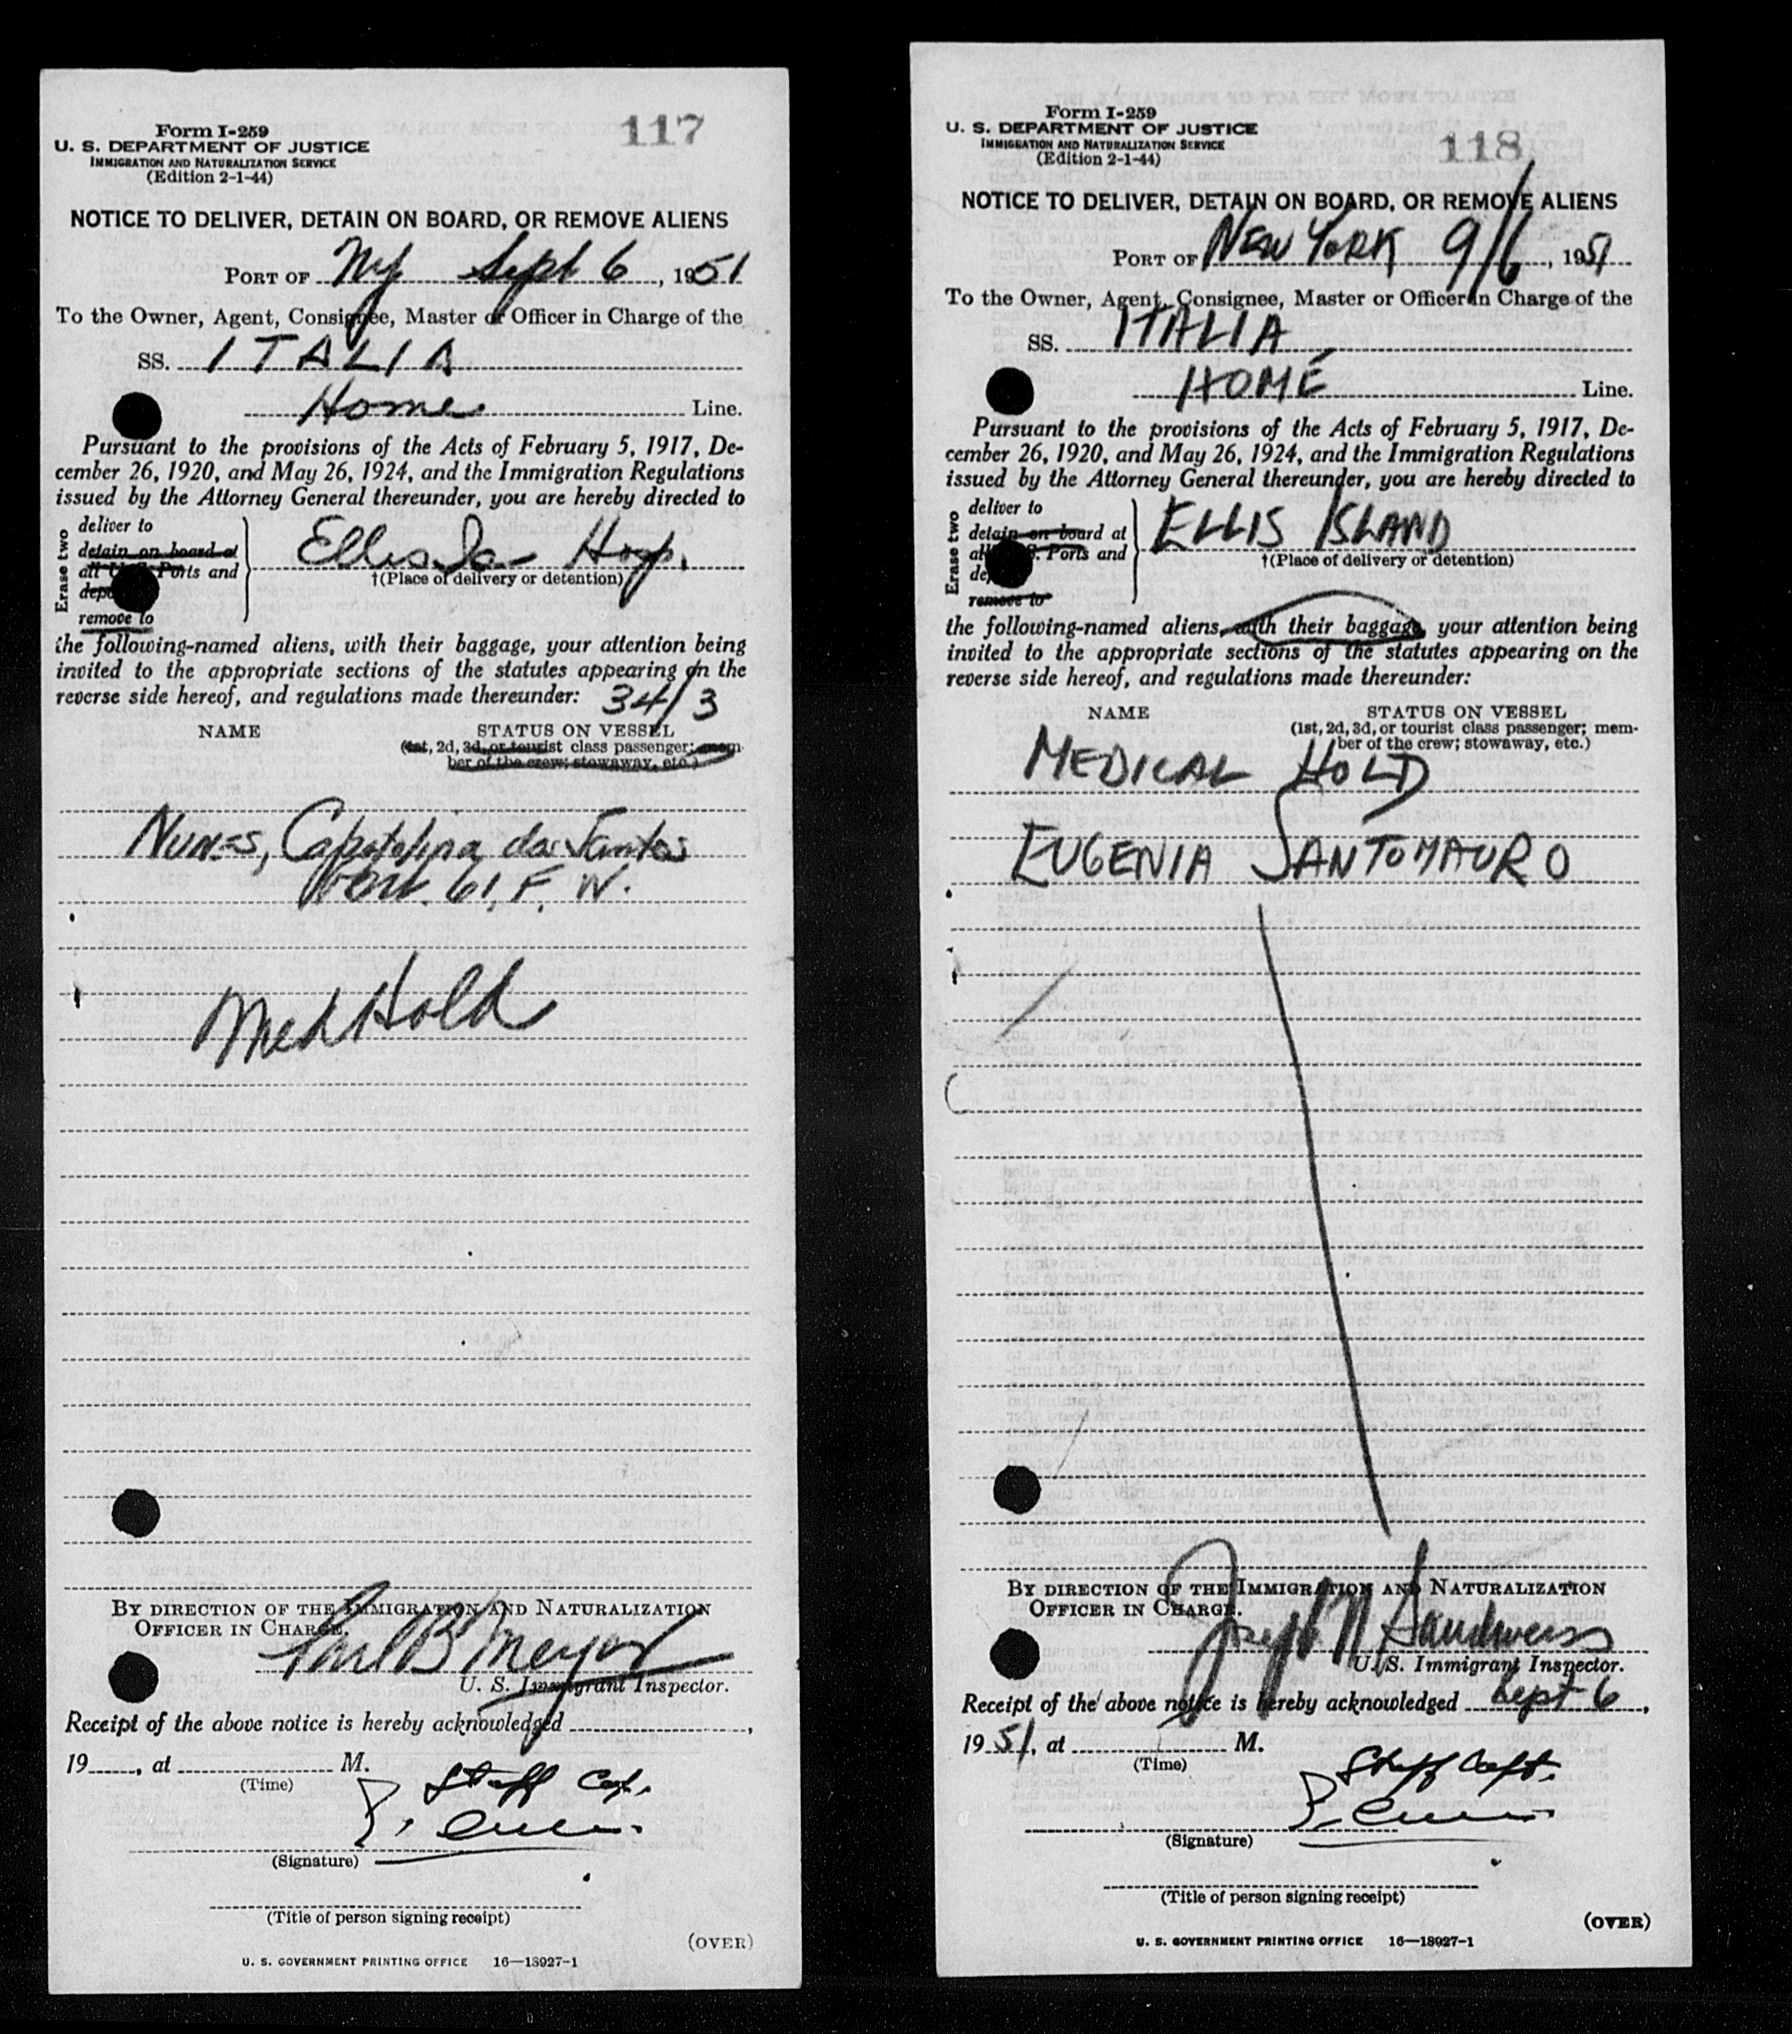 117
Form I-259
U. S. DEPARTMENT OF JUSTICE
IMMIGRATION AND NATURALIZATION SERVICE
(Edition 2-1-44)
NOTICE TO DELIVER, DETAIN ON BOARD, OR REMOVE ALIENS
PORT OF NY Sept 6, 1951
To the Owner, Agent, Consignee, Master or Officer in Charge of the
SS. ITALIA
Home Line.
Pursuant to the provisions of the Acts of February 5, 1917, De-
cember 26, 1920, and May 26, 1924, and the Immigration Regulations
issued by the Attorney General thereunder, you are hereby directed to
Erase two
deliver to
detain on board at
all U. S. Ports and
remove to
Ellis Is Hosp.
†(Place of delivery or detention)
the following-named aliens, with their baggage, your attention being
invited to the appropriate sections of the statutes appearing on the
reverse side hereof, and regulations made thereunder: 34/3
NAME STATUS ON VESSEL
(1st, 2d, 3d, or tourist class passenger; mem-
ber of the crew; stowaway, etc.)
Nunes, Capatolina dos Santos
Port. 61, F, W.
Med Hold
BY DIRECTION OF THE IMMIGRATION AND NATURALIZATION
OFFICER IN CHARGE.
B Meyer
U. S. Immigrant Inspector.
Receipt of the above notice is hereby acknowledged ,
19 , at M.
(Time)
Staff Capt.
(Signature)
(Title of person signing receipt)
(OVER)
U. S. GOVERNMENT PRINTING OFFICE 16—18927-1
118
Form I-259
U. S. DEPARTMENT OF JUSTICE
IMMIGRATION AND NATURALIZATION SERVICE
(Edition 2-1-44)
NOTICE TO DELIVER, DETAIN ON BOARD, OR REMOVE ALIENS
PORT OF NEW YORK 9/6, 1951
To the Owner, Agent, Consignee, Master or Officer in Charge of the
SS. ITALIA
HOME Line.
Pursuant to the provisions of the Acts of February 5, 1917, De-
cember 26, 1920, and May 26, 1924, and the Immigration Regulations
issued by the Attorney General thereunder, you are hereby directed to
Erase two
deliver to
detain on board at
all U. S. Ports and
remove to
ELLIS ISLAND
†(Place of delivery or detention)
the following-named aliens, with their baggage, your attention being
invited to the appropriate sections of the statutes appearing on the
reverse side hereof, and regulations made thereunder:
NAME STATUS ON VESSEL
(1st, 2d, 3d, or tourist class passenger; mem-
ber of the crew; stowaway, etc.)
MEDICAL HOLD
EUGENIA SANTOMAURO
BY DIRECTION OF THE IMMIGRATION AND NATURALIZATION
OFFICER IN CHARGE.
Joseph N Sandweiss
U. S. Immigrant Inspector.
Receipt of the above notice is hereby acknowledged Sept 6,
1951, at M.
(Time)
Staff Capt.
(Signature)
(Title of person signing receipt)
(OVER)
U. S. GOVERNMENT PRINTING OFFICE 16—18927-1